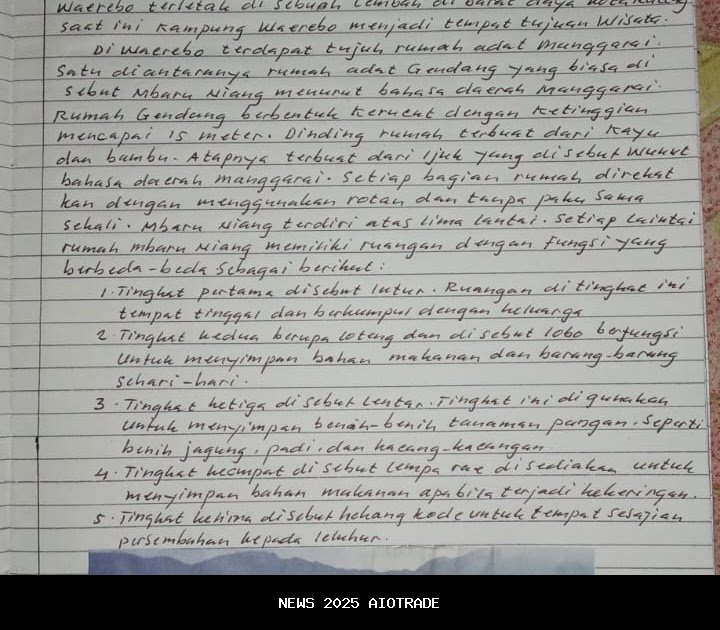 Waerebo terletak di sebuah lembah di barat daya
saat ini Kampung Waerebo menjadi tempat tujuan Wisata.
Di Waerebo terdapat tujuh rumah adat Manggarai.
Satu diantaranya rumah adat Gendang yang biasa di
sebut Mbaru Niang menurut bahasa daerah Manggarai.
Rumah Gendang berbentuk Kerucut dengan Ketinggian
mencapai 15 meter. Dinding rumah terbuat dari Kayu
dan bambu. Atapnya terbuat dari Ijuk yang disebut Wunut
bahasa daerah manggarai. Setiap bagian rumah direkat
kan dengan menggunakan rotan dan tanpa paku sama
sekali. Mbaru Niang terdiri atas lima lantai. Setiap laintai
rumah mbaru Niang memiliki ruangan dengan fungsi yang
berbeda-beda Sebagai berikut:
1. Tingkat pertama disebut lutur. Ruangan di tingkat ini
tempat tinggal dan berkumpul dengan keluarga
2. Tingkat kedua berupa loteng dan disebut lobo berfungsi
Untuk menyimpan bahan makanan dan barang-barang
sehari-hari.
3. Tingkat ketiga di sebut lentar. Tingkat ini digunakan
untuk menyimpan benih-benih tanaman pangan. Seperti
benih jagung, padi, dan kacang-kacangan
4. Tingkat keempat di sebut lempa rae disediakan untuk
menyimpan bahan makanan apabila terjadi kekeringan.
5. Tingkat kelima disebut hekang kode untuk tempat sesajian
persembahan kepada leluhur.
NEWS 2025 AIOTRADE